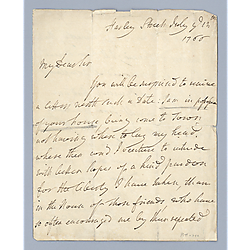 Harley Street July 9th 12th
1788
My Dear Sir
You will be surprised to receive
a letter with such a date. I am in possession
of your house being come to Town
not knowing where to lay my head,
where then could I venture to intrude
with better hopes of a kind pardon
for the liberty I have taken than
in the House of those friends who have
so often encouraged me by their repeated